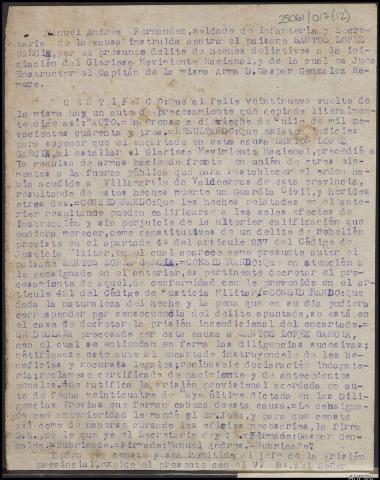 25061/017(12)
Manuel Andres Fernandez, soldado de Infanteria y Secre-
tario de la causa instruida contra el paisano SANTOS LOPEZ
GARCIA, por el presunto delito de hechos delictivos a la ini-
ciación del Glorioso Movimiento Nacional, y de la cual es Juez
Instructor el Capitán de la misma Arma D. Gaspar Gonzalez
mero.
C E R T I F I C O: Que al folio veintinueve vuelto de
la misma hay un auto de procesamiento que copiado literalmen-
te dice así: "AUTO.= En Orense a dieciocho de Julio de mil no-
vecientos cuarenta y tres.=RESULTANDO: Que existen indicios
para suponer que el encartado en esta causa SANTOS LOPEZ
GARCIA, al estallar el Glorioso Movimiento Nacional, procedió a
la recogida de armas haciendo frente en unión de otros ele-
mentos a la fuerza pública que para restablecer el orden ha-
bía acudido a Villamartin de Valdeorras de esta provincia,
resultando de estos hechos muerto un Guardia Civil, y heridos
otros dos.=CONSIDERANDO: Que los hechos relatados en el ante-
rior resultando pueden calificarse a los solos efectos de
instrucción y sin perjuicio de la ulterior calificación que
pudiera merecer, como constitutivos de un delito de rebelión
previsto en el apartado 4º del articulo 237 del Código de
Justicia Militar, en el cual aparece como presunto autor el
paisano SANTOS LOPEZ GARCIA.=CONSIDERANDO: Que en atención a
lo consignado en el anterior, es pertinente decretar el pro-
cesamiento de aquel, de conformidad con lo prevenido en el
articulo 421 del Código de Justicia Militar.=CONSIDERANDO: que
dada la naturaleza del hecho y la pena que en su día pudiera
corresponder por consecuencia del delito apuntado, se está en
el caso de decretar la prisión incondicional del encartado.=
SE DECLARA procesado por esta causa a SANTOS LOPEZ GARCIA,
con el cual se entiendan en forma las diligencias sucesivas;
notifiquese este auto al encartado instruyendole de los be-
neficios y recursos legales; recibasele declaración indaga-
toria; reclamese certificado de nacimiento y de antecedentes
penales.=Se ratifica la prisión provisional acordada en au-
to de fecha veinticuatro de Mayo último, dictado en las Dili-
gencias Previas que forman cabeza de esta causa.=Lo consigna-
do con anterioridad lo mandó y S.Juez, y para que conste
así como de haberse cursado los oficios necesarios, la firma
S.S., de lo que yo el Secretario doy fé.=Firmado: Gaspar Gon-
zalez.=Rubricado.=Firmado: Manuel Andres.=Rubricado".
Y para que conste y sea remitido al jefe de la Prisión
provincial, expido el presente con el Vº Bº. del Señor